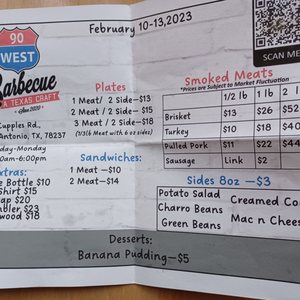 February 10-13,2023
90
WEST
Barbecue
A TEXAS CRAFT
Since 2020
Cupples Rd.
Antonio, TX, 78237
day-Monday
0am-6:00pm
xtras:
e Bottle $10
Shirt $15
ap $20
mbler $23
wood $18
Plates
1 Meat/ 2 Side—$13
2 Meat/ 2 Side—$15
3 Meat/ 2 Side—$18
(1/3lb Meat with 6 oz sides)
Sandwiches:
1 Meat —$10
2 Meat—$14
SCAN ME
Smoked Meats
*Prices are Subject to Market Fluctuation
1/2 lb 1 lb 2 l
Brisket $13 $26 $52
Turkey $10 $18 $40
Pulled Pork $11 $22 $44
Sausage Link $2
Sides 8oz —$3
Potato Salad Creamed Co
Charro Beans Mac n Chees
Green Beans
Desserts:
Banana Pudding—$5